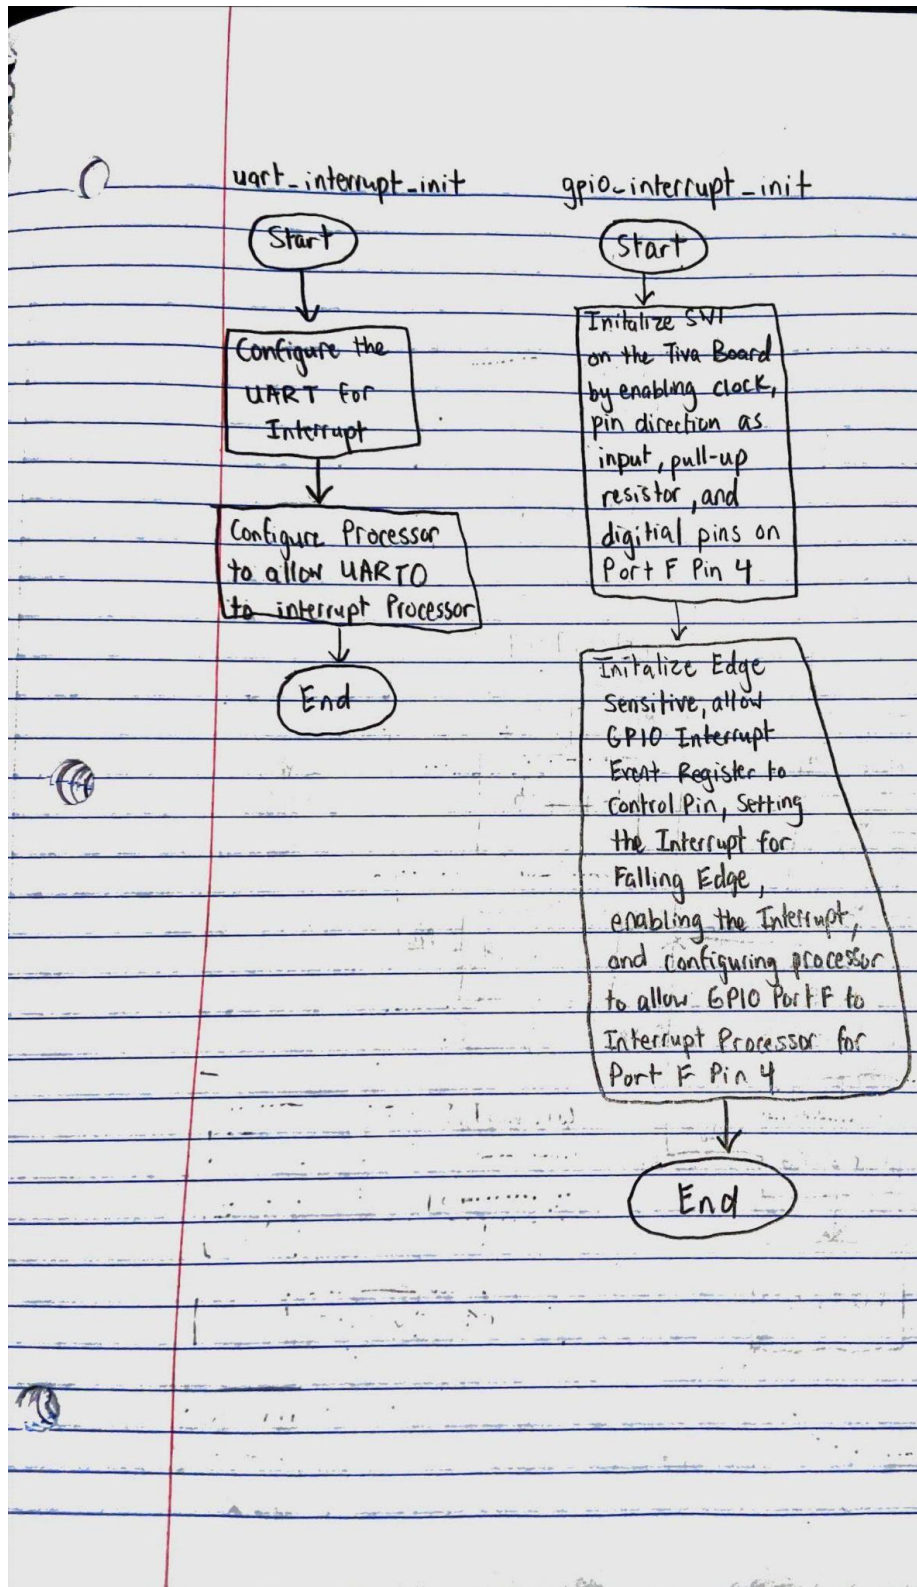 uart_interrupt_init
Start
Configure the
UART for
Interrupt
Configure Processor
to allow UART0
to interrupt Processor
End
gpio_interrupt_init
Start
Initalize SW1
on the Tiva Board
by enabling clock,
pin direction as
input, pull-up
resistor, and
digitial pins on
Port F Pin 4
Initalize Edge
Sensitive, allow
GPIO Interrupt
Event Register to
Control Pin, Setting
the Interrupt for
Falling Edge,
enabling the Interrupt,
and configuring processor
to allow GPIO Port F to
Interrupt Processor for
Port F Pin 4
End